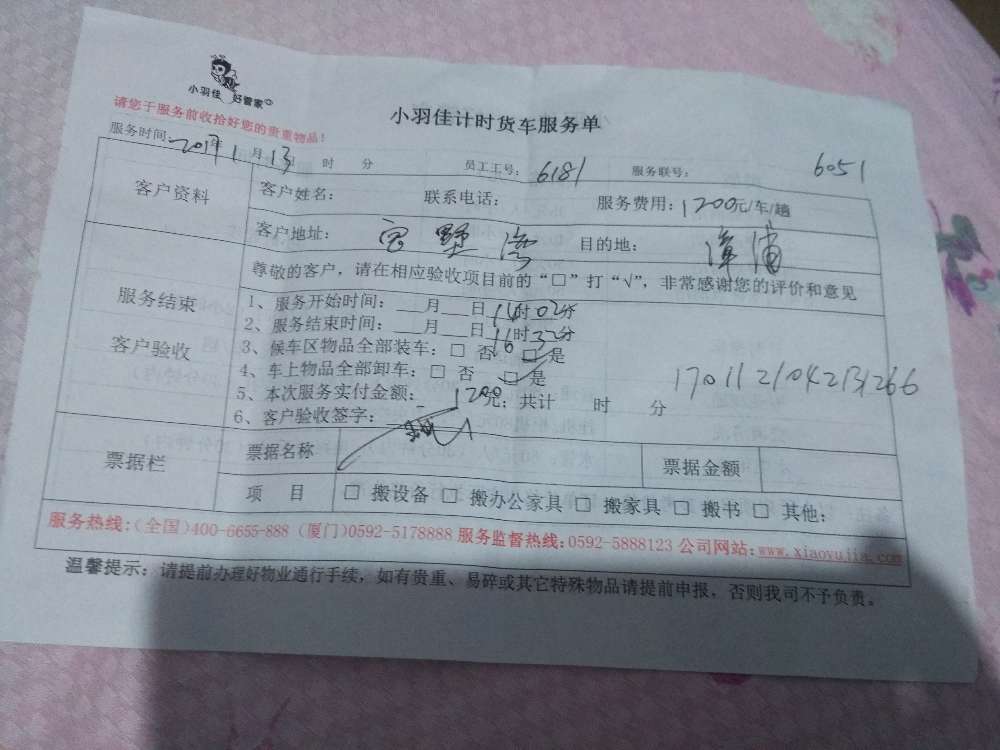 小羽佳 好管家
小羽佳计时货车服务单
请您于服务前收拾好您的贵重物品!
服务时间: 2017年1月13 时 分 员工工号: 6181 服务联号: 6051
客户资料 客户姓名: 联系电话: 服务费用: 1200元/车/趟
客户地址: 墅 目的地: 漳浦
尊敬的客户，请在相应验收项目前的“□”打“√”，非常感谢您的评价和意见
服务结束
客户验收
1、服务开始时间: ___月___日14时02分
2、服务结束时间: ___月___日16时32分
3、候车区物品全部装车: □ 否 □ 是
4、车上物品全部卸车: □ 否 □ 是
5、本次服务实付金额: 1200元; 共计 时 分
1701121042131266
6、客户验收签字:
票据栏 票据名称 票据金额
项 目 □ 搬设备 □ 搬办公家具 □ 搬家具 □ 搬书 □ 其他:
服务热线:(全国)400-6655-888 (厦门)0592-5178888 服务监督热线:0592-5888123 公司网站:www.xiaoyujia.com
温馨提示: 请提前办理好物业通行手续，如有贵重、易碎或其它特殊物品请提前申报，否则我司不予负责。